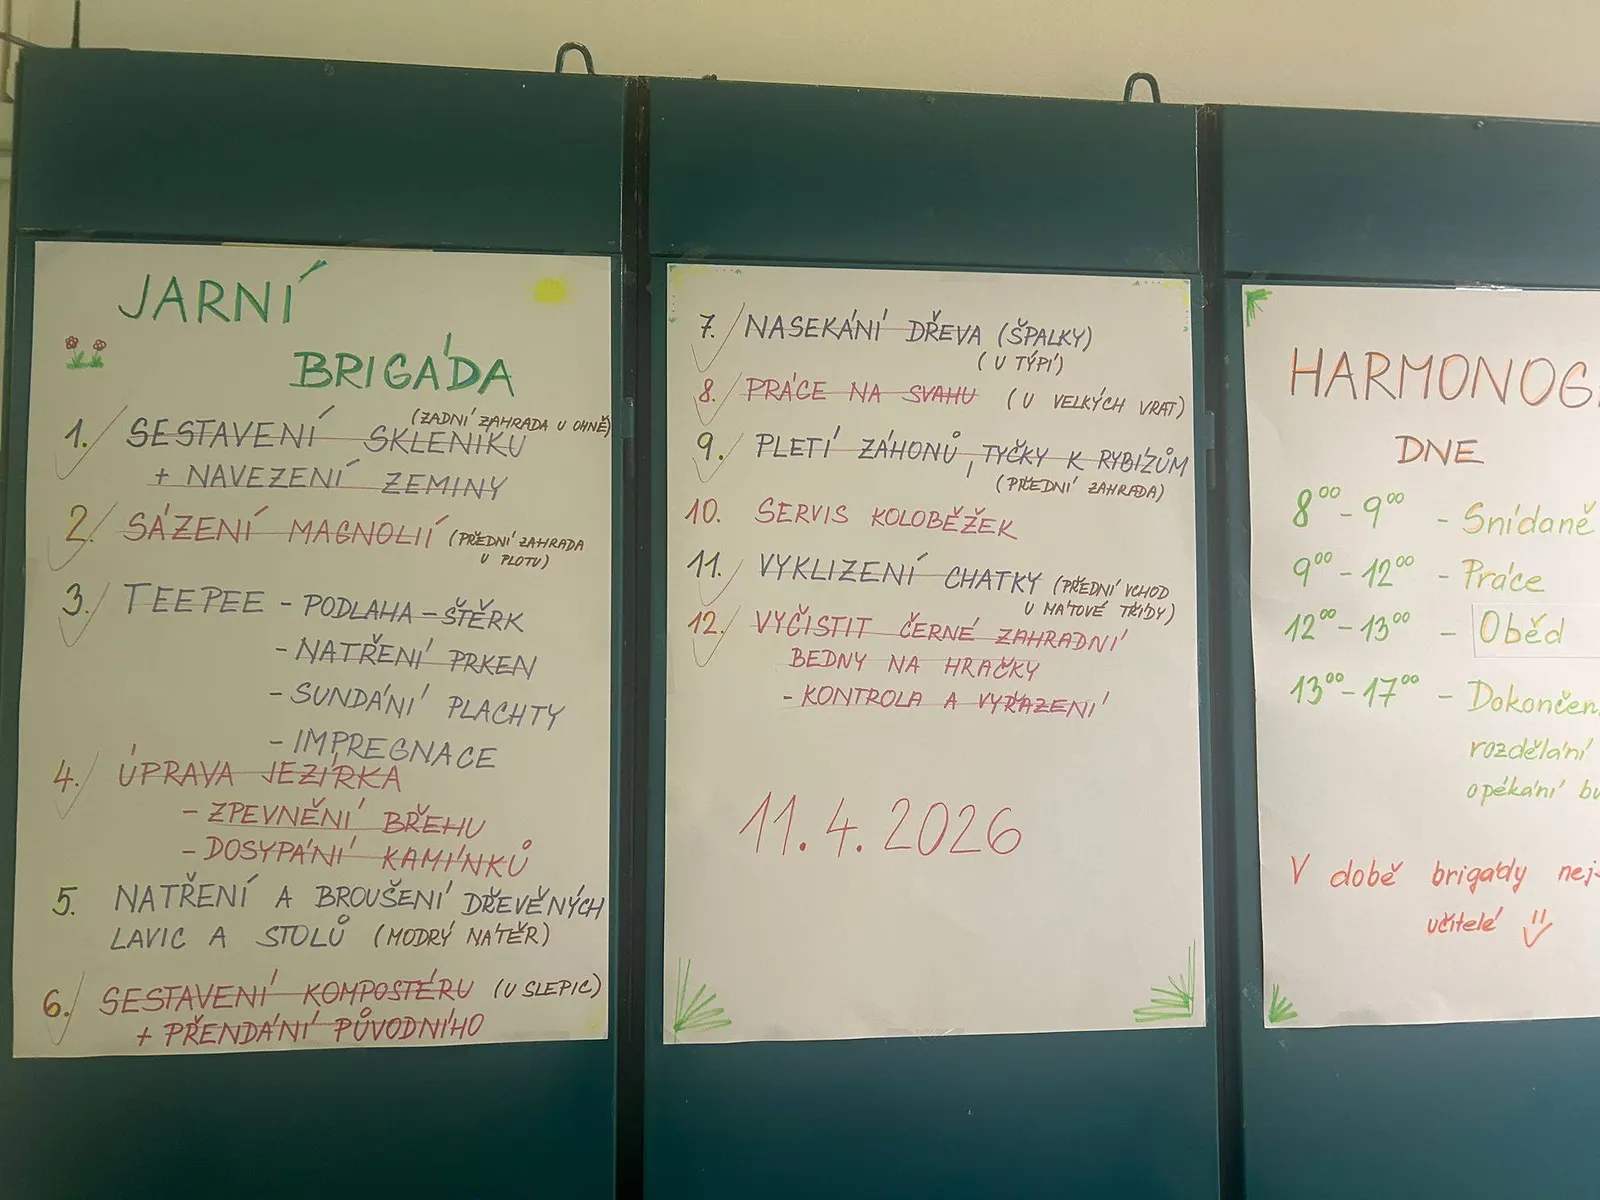 JARNÍ
BRIGÁDA
(ZADNÍ ZAHRADA U OHNĚ)
1. SESTAVENÍ SKLENÍKU
+ NAVEZENÍ ZEMINY
2. SÁZENÍ MAGNOLIÍ (PŘEDNÍ ZAHRADA
U PLOTU)
3. TEEPEE - PODLAHA - ŠTĚRK
- NATŘENÍ PRKEN
- SUNDÁNÍ PLACHTY
- IMPREGNACE
4. ÚPRAVA JEZÍRKA
- ZPEVNĚNÍ BŘEHU
- DOSYPÁNÍ KAMÍNKŮ
5. NATŘENÍ A BROUŠENÍ DŘEVĚNÝCH
LAVIC A STOLŮ (MODRÝ NÁTĚR)
6. SESTAVENÍ KOMPOSTÉRU (U SLEPIC)
+ PŘENDÁNÍ PŮVODNÍHO
7. NASEKÁNÍ DŘEVA (ŠPALKY)
(U TÝPÍ)
8. PRÁCE NA SVAHU (U VELKÝCH VRAT)
9. PLETÍ ZÁHONŮ, TYČKY K RYBÍZŮM
(PŘEDNÍ ZAHRADA)
10. SERVIS KOLOBĚŽEK
11. VYKLIZENÍ CHATKY (PŘEDNÍ VCHOD
U MÁTOVÉ TŘÍDY)
12. VYČISTIT ČERNÉ ZAHRADNÍ
BEDNY NA HRAČKY
- KONTROLA A VYŘAZENÍ
11.4.2026
HARMONOG
DNE
8⁰⁰ - 9⁰⁰ - Snídaně
9⁰⁰ - 12⁰⁰ - Práce
12⁰⁰ - 13⁰⁰ - Oběd
13⁰⁰ - 17⁰⁰ - Dokončen
rozdělání
opékání bu
V době brigády nej-
učitelé